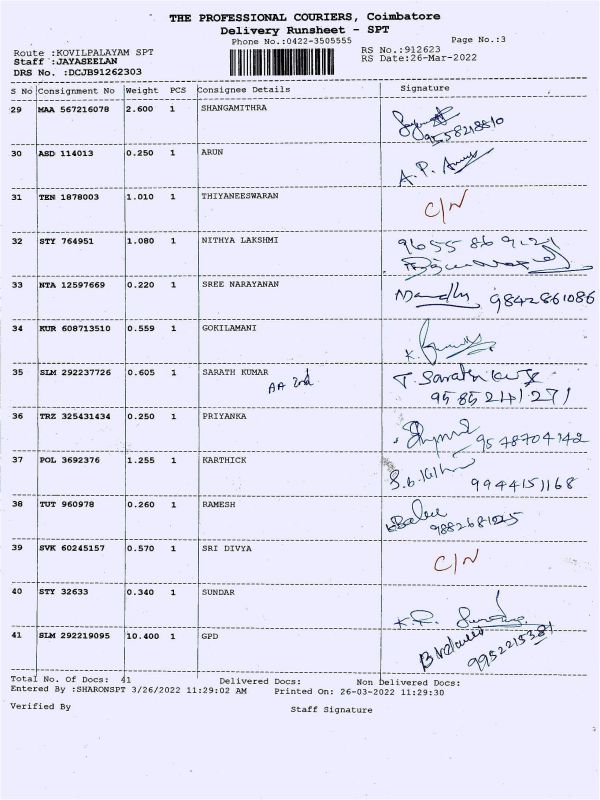 THE PROFESSIONAL COURIERS, Coimbatore
Delivery Runsheet - SPT
Phone No.:0422-3505555
Page No.:3
Route :KOVILPALAYAM SPT
RS No.:912623
Staff :JAYASEELAN
RS Date:26-Mar-2022
DRS No. :DCJB91262303
S No Consignment No Weight PCS Consignee Details Signature
29 MAA 567216078 2.600 1 SHANGAMITHRA
30 ASD 114013 0.250 1 ARUN A.P.
31 TEN 1878003 1.010 1 THIYANEESWARAN C/N
32 STY 764951 1.080 1 NITHYA LAKSHMI
33 NTA 12597669 0.220 1 SREE NARAYANAN 9842861086
34 KUR 608713510 0.559 1 GOKILAMANI K.
35 SLM 292237726 0.605 1 SARATH KUMAR T. Sarath
AA 2nd 9585241271
36 TRZ 325431434 0.250 1 PRIYANKA 9548704142
37 POL 3692376 1.255 1 KARTHICK 9944151168
38 TUT 960978 0.260 1 RAMESH
39 SVK 60245157 0.570 1 SRI DIVYA C/N
40 STY 32633 0.340 1 SUNDAR K.R.
41 SLM 292219095 10.400 1 GPD 9952215381
Total No. Of Docs: 41 Delivered Docs: Non Delivered Docs:
Entered By :SHARONSPT 3/26/2022 11:29:02 AM Printed On: 26-03-2022 11:29:30
Verified By Staff Signature